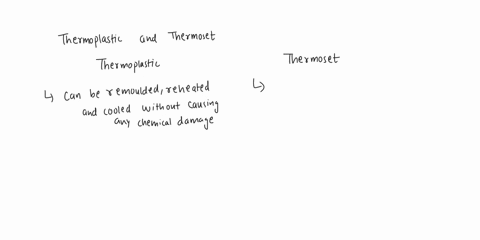 Thermoplastic and Thermoset
Thermoplastic
Thermoset
↳ Can be remoulded, reheated
and cooled without causing
any chemical damage
↳